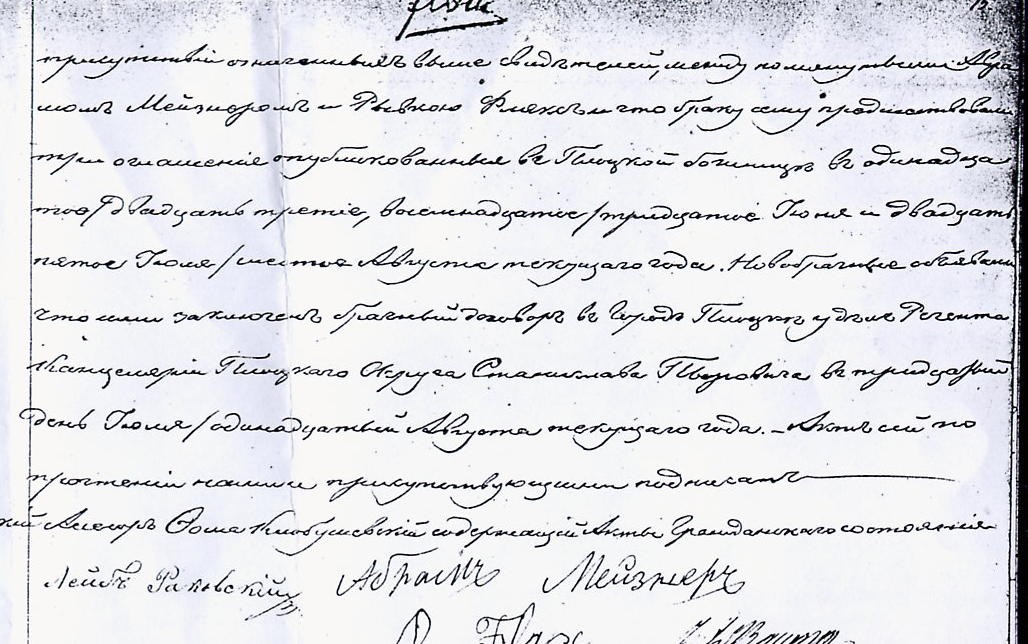 присутствіи означенныхъ выше свидѣтелей, между помянутыми Авра
момъ Мейзнеромъ и Рывкою Фляксъ и что браку сему предшествовали
три оглашенія опубликованныя въ Плоцкой божницѣ въ одинадца
тое/двадцать третіе, восемнадцатое/тридцатое Іюня и двадцать
пятое Іюля/шестое Августа текущаго года. Новобрачные объявили
что ими заключенъ брачный договоръ въ городѣ Плоцкѣ у Регента
Канцеляріи Плоцкаго Округа Станислава въ тридцатый
день Іюля/одинадцатый Августа текущаго года. - Актъ сей по
прочтеніи нами и присутствующими подписанъ
Асесоръ Ѳома Клобушевскій содержащій Акты Гражданскаго состоянія
Лейбъ Раковскій Абрамъ Мейзнеръ